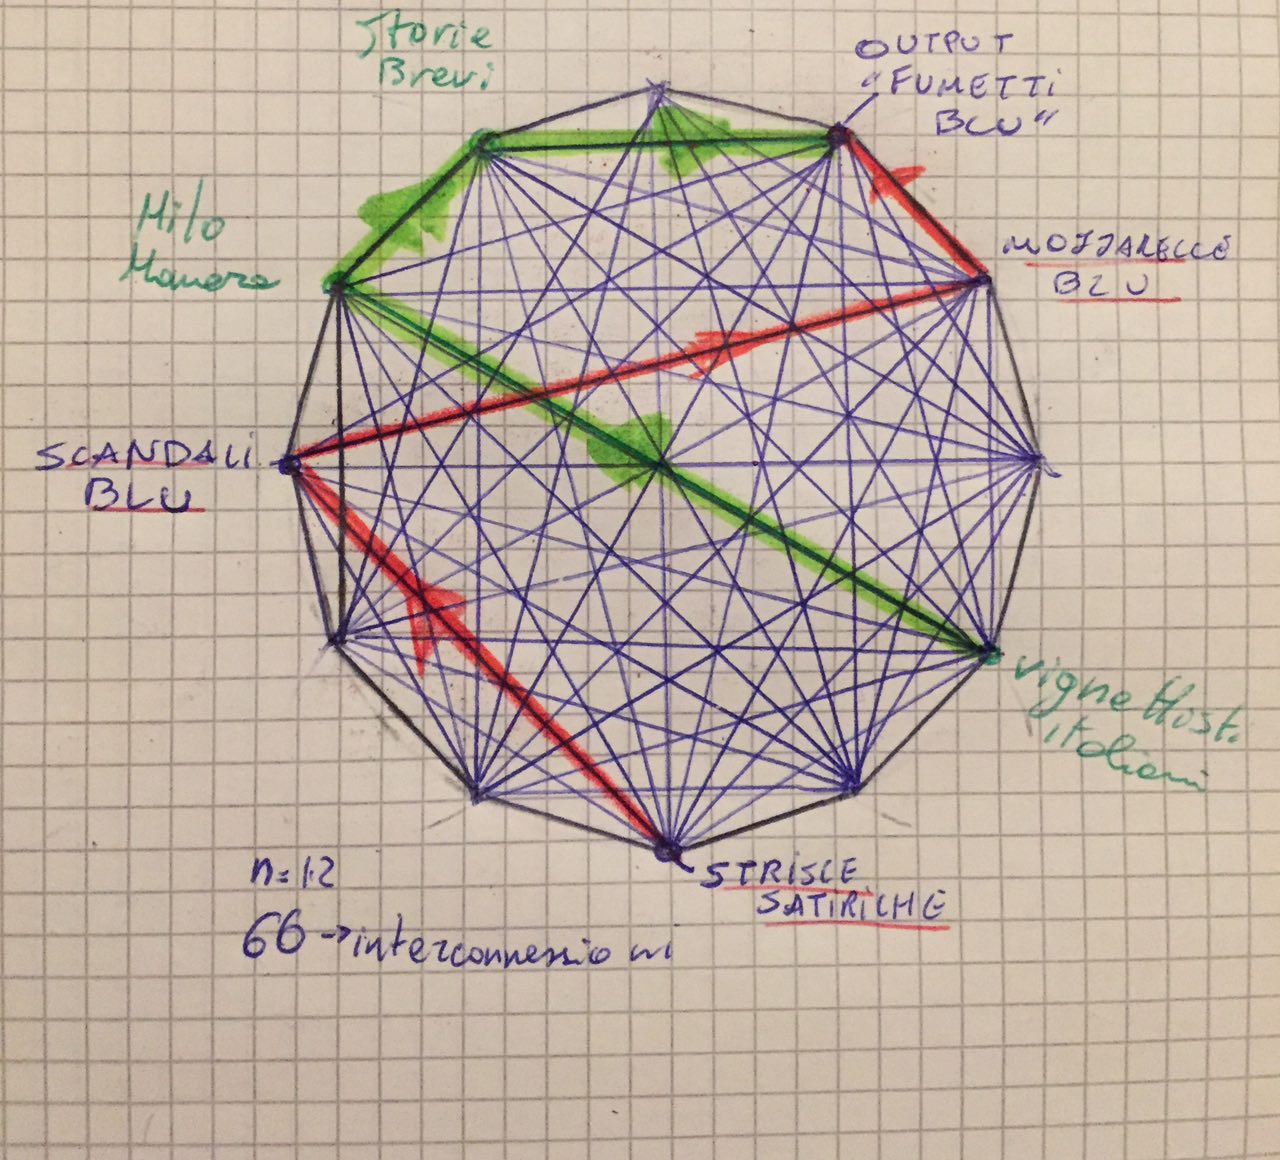 Storie
Brevi
OUTPUT
"FUMETTi
BLU"
Milo
Manara
MOZZARELLE
BLU
SCANDALi
BLU
vignettist.
italiani
n=12
STRISCE
SATIRICHE
66 → interconnessioni